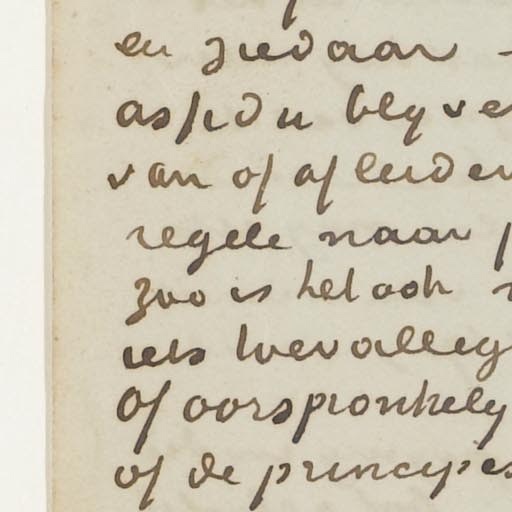 en ziedaar -
aspdu blyve
van of afleiden
regele naar
zoo is het ook
iets toevallig
Of oorspronkely
of de principes